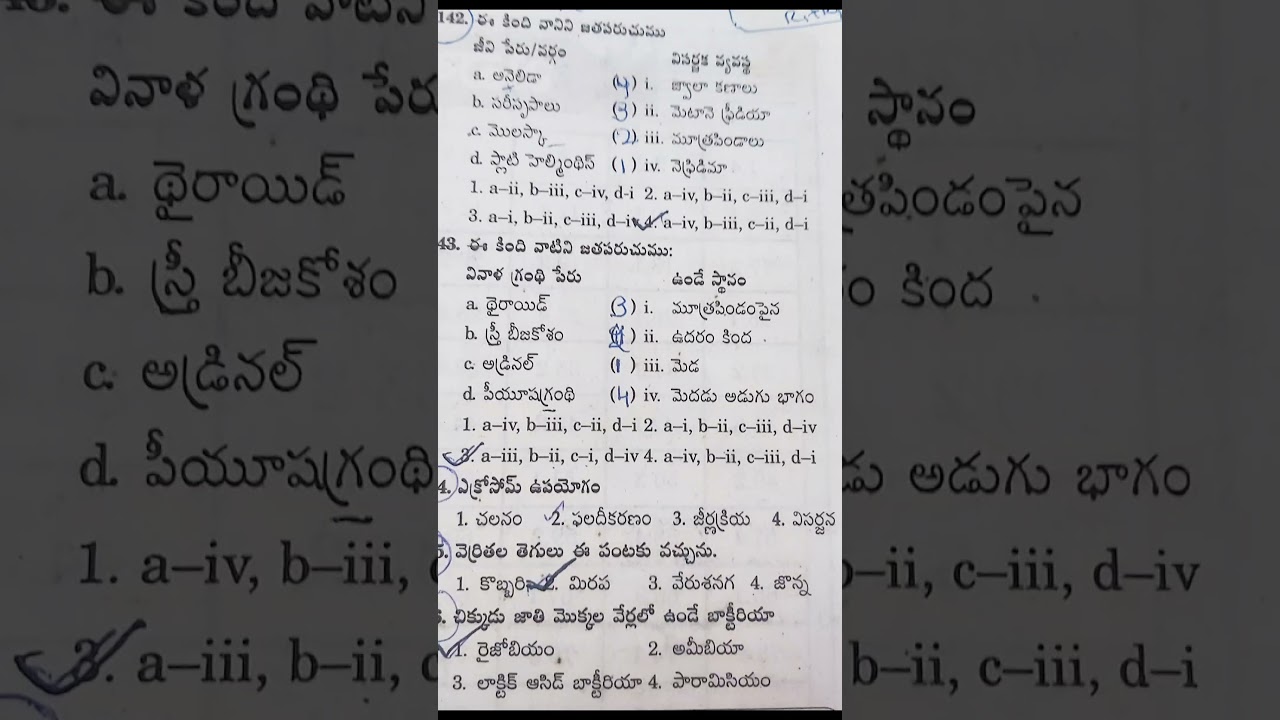 142. ఈ కింది వానిని జతపరుచుము
జీవి పేరు/వర్గం విసర్జక వ్యవస్థ
a. అనెలిడా (4) i. జ్వాలా కణాలు
b. సరీసృపాలు (3) ii. మెటానె ఫ్రీడియా
c. మొలస్కా (2) iii. మూత్రపిండాలు
d. ప్లాటి హెల్మింథిస్ (1) iv. నెఫ్రిడిమా
1. a–ii, b–iii, c–iv, d-i 2. a–iv, b–ii, c–iii, d–i
3. a–i, b–ii, c–iii, d–iv 4. a–iv, b–iii, c–ii, d–i
43. ఈ కింది వాటిని జతపరుచుము:
వినాళ గ్రంథి పేరు ఉండే స్థానం
a. థైరాయిడ్ (3) i. మూత్రపిండంపైన
b. స్త్రీ బీజకోశం ( ) ii. ఉదరం కింద
c. అడ్రినల్ (1) iii. మెడ
d. పీయూషగ్రంథి (4) iv. మెదడు అడుగు భాగం
1. a–iv, b–iii, c–ii, d–i 2. a–i, b–ii, c–iii, d–iv
3. a–iii, b–ii, c–i, d–iv 4. a–iv, b–ii, c–iii, d–i
4. ఎక్రోసోమ్ ఉపయోగం
1. చలనం 2. ఫలదీకరణం 3. జీర్ణక్రియ 4. విసర్జన
5. వెర్రితల తెగులు ఈ పంటకు వచ్చును.
1. కొబ్బరి 2. మిరప 3. వేరుశనగ 4. జొన్న
చిక్కుడు జాతి మొక్కల వేర్లలో ఉండే బాక్టీరియా
1. రైజోబియం 2. అమీబియా
3. లాక్టిక్ ఆసిడ్ బాక్టీరియా 4. పారామిసియం